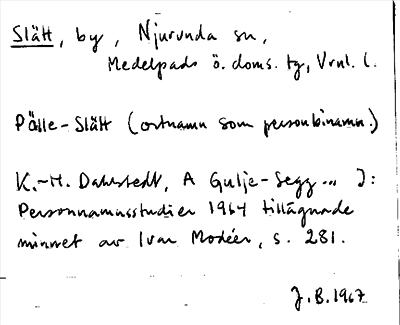 Slätt, by, Njurunda sn,
Medelpads ö. doms. tg, Vrnl. l.
Pälle-Slätt (ortnamn som personbinamn.)
K.-H. Dahlstedt, A Gulje-Segg... I:
Personnamnsstudier 1964 tillägnade
minnet av Ivar Modéer, s. 281.
J.B. 1967